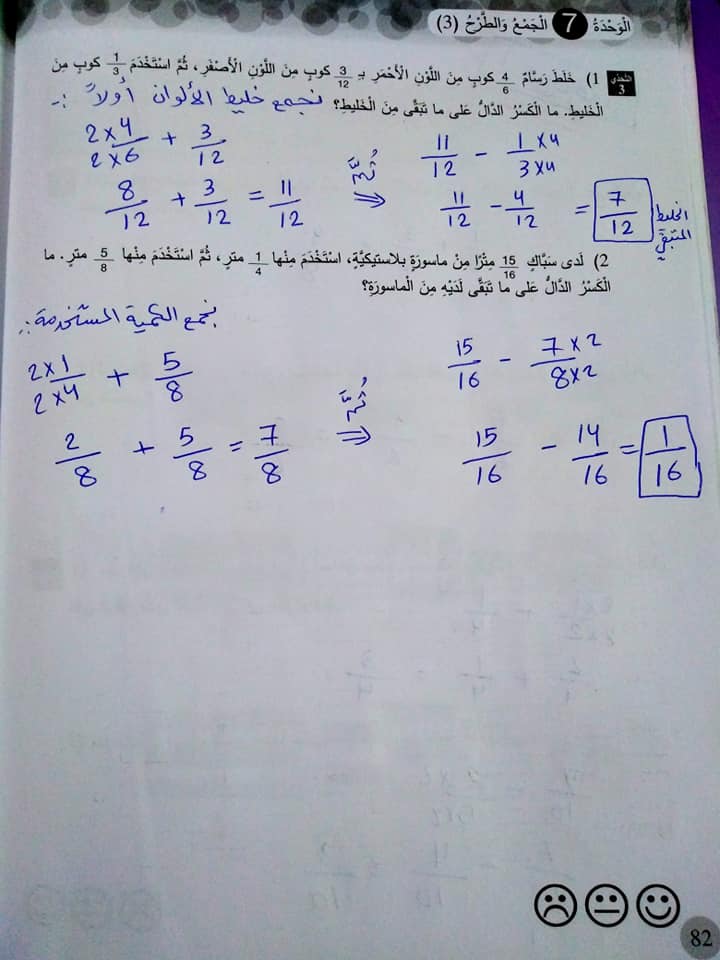 الْوَحْدَةُ 7 الْجَمْعُ وَالطَّرْحُ (3)
التَّحَدّي 3
1) خَلَطَ رَسّامٌ 4/6 كوبٍ مِنَ اللَّوْنِ الْأَحْمَرِ بِـ 3/12 كوبٍ مِنَ اللَّوْنِ الْأَصْفَرِ، ثُمَّ اسْتَخْدَمَ 1/3 كوبٍ مِنَ
الْخَليطِ. ما الْكَسْرُ الدّالُّ عَلى ما تَبَقّى مِنَ الْخَليطِ؟ نجمع خليط الألوان أولاً :-
2×4/2×6 + 3/12
8/12 + 3/12 = 11/12
ثُمَّ ⇒
11/12 - 1×4/3×4
11/12 - 4/12 = 7/12
الخليط
المتبقي
2) لَدى سَبّاكٍ 15/16 مِتْرًا مِنْ ماسورَةٍ بلاستيكيَّةٍ، اسْتَخْدَمَ مِنْها 1/4 مترٍ، ثُمَّ اسْتَخْدَمَ مِنْها 5/8 مترٍ. ما
الْكَسْرُ الدّالُّ عَلى ما تَبَقّى لَدَيْهِ مِنَ الْماسورَةِ؟
نجمع الكمية المستخدمة :-
2×1/2×4 + 5/8
2/8 + 5/8 = 7/8
ثُمَّ ⇒
15/16 - 7×2/8×2
15/16 - 14/16 = 1/16
82